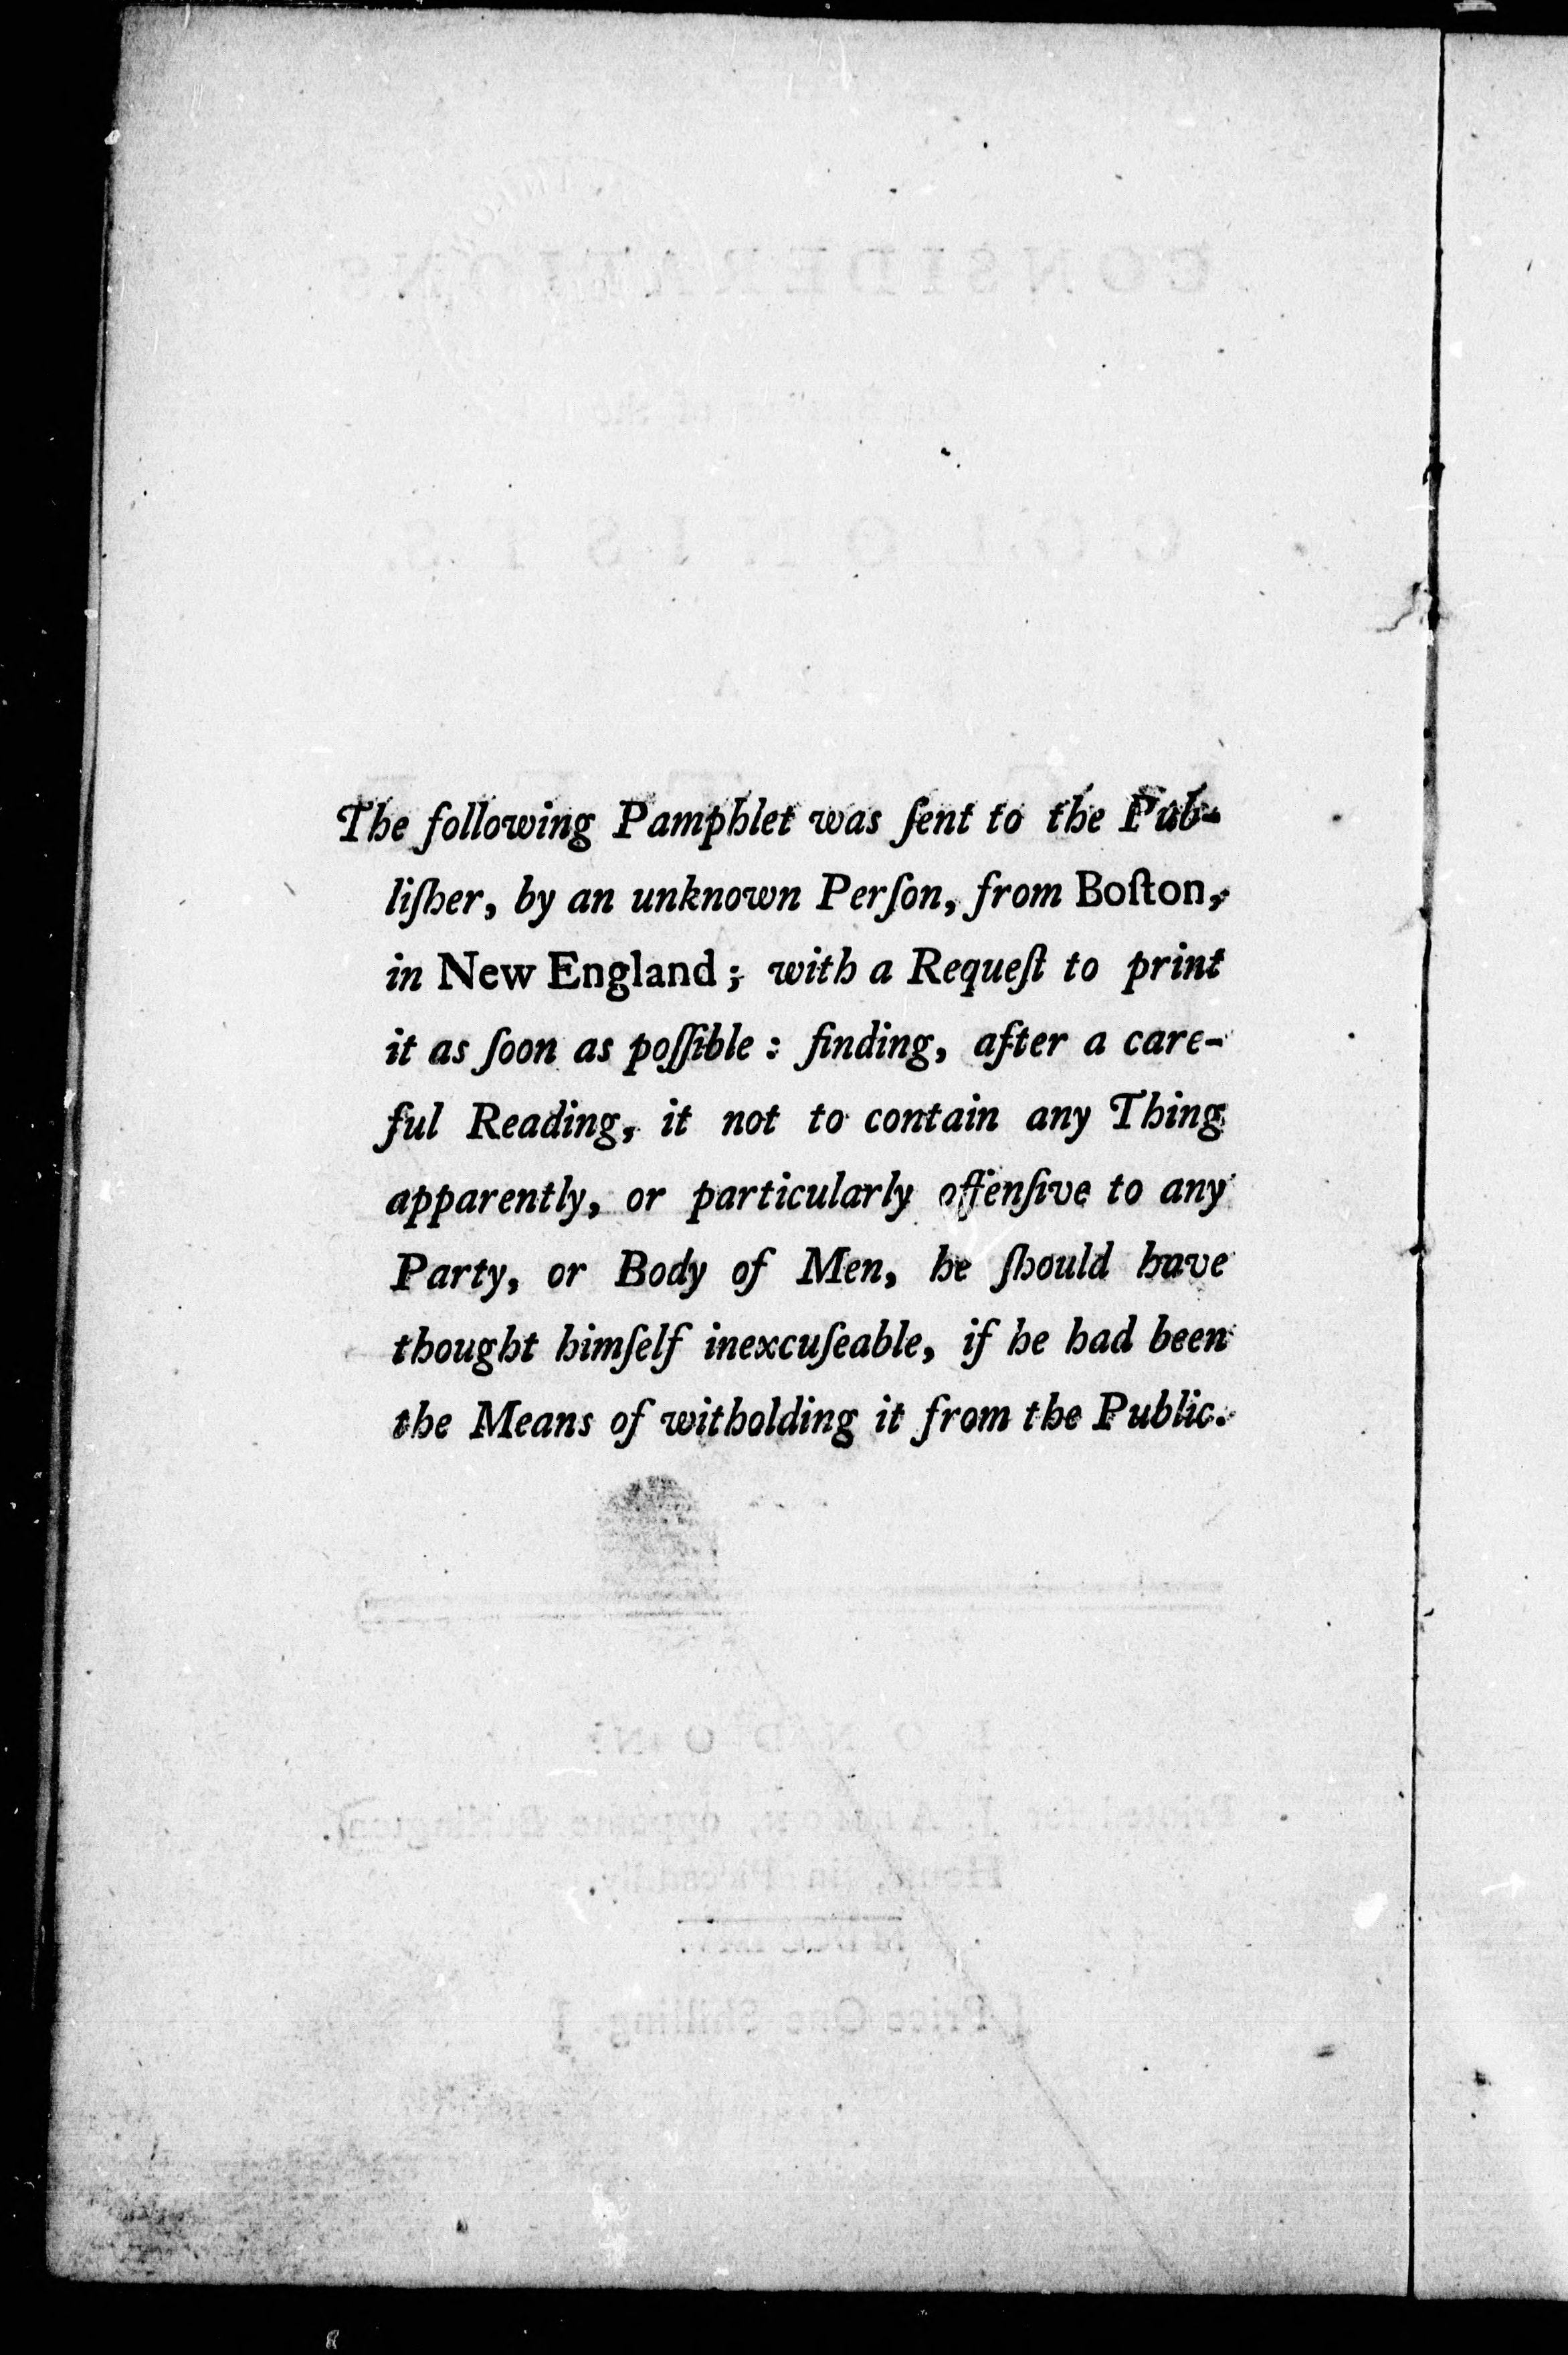 The following Pamphlet was ſent to the Pub-
liſher, by an unknown Perſon, from Boſton,
in New England; with a Requeſt to print
it as ſoon as poſſible: finding, after a care-
ful Reading, it not to contain any Thing
apparently, or particularly offenſive to any
Party, or Body of Men, he ſhould have
thought himſelf inexcuſeable, if he had been
the Means of witholding it from the Public.